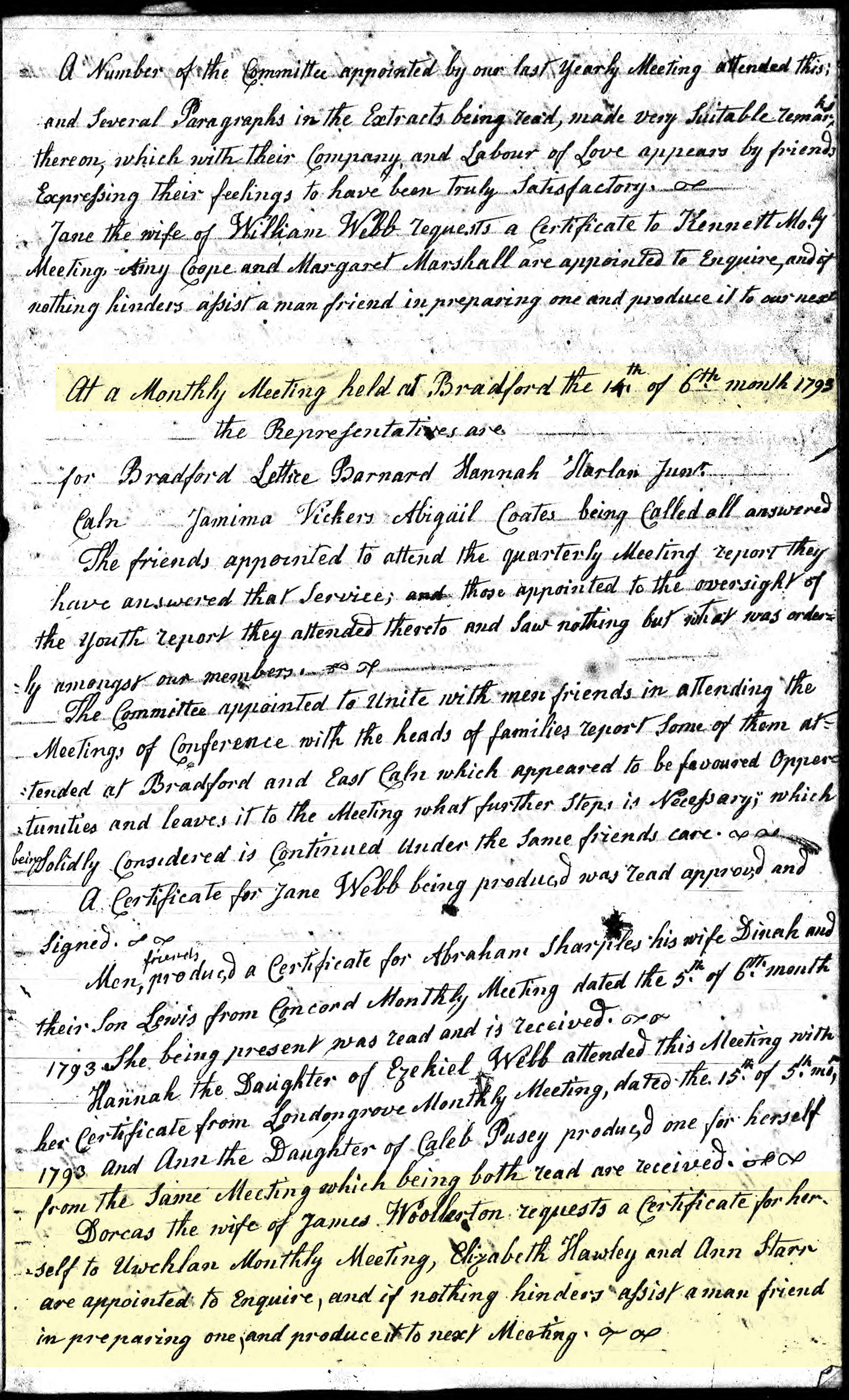 A Number of the Committee appointed by our last Yearly Meeting attended this;
and Several Paragraphs in the Extracts being read, made very Suitable remarks
thereon, which with their Company, and Labour of Love appears by friends
Expressing their feelings to have been truly Satisfactory.
Jane the wife of William Webb requests a Certificate to Kennett Mo.ly
Meeting. Amy Coope and Margaret Marshall are appointed to Enquire, and if
nothing hinders assist a man friend in preparing one and produce it to our next
At a Monthly Meeting held at Bradford the 14th of 6th month 1793
the Representatives are
for Bradford Lettice Barnard Hannah Harlan Junr.
Caln Jamima Vickers Abigail Coates being Called all answered
The friends appointed to attend the quarterly Meeting report they
have answered that Service; and those appointed to the oversight of
the Youth report they attended thereto and Saw nothing but what was order=
=ly amongst our members.
The Committee appointed to Unite with men friends in attending the
Meetings of Conference with the heads of families report Some of them at=
=tended at Bradford and East Caln which appeared to be favoured Oppor=
=tunities and leaves it to the Meeting what further Steps is Necessary; which
being Solidly Considered is Continued Under the Same friends care.
A Certificate for Jane Webb being produc,d was read approv,d and
Signed.
Men friends produc,d a Certificate for Abraham Sharples his wife Dinah and
their Son Lewis from Concord Monthly Meeting dated the 5th of 6th month
1793 She being present was read and is received.
Hannah the Daughter of Ezekiel Webb attended this Meeting with
her Certificate from Londongrove Monthly Meeting, dated the 15th of 5th mo,
1793 and Ann the Daughter of Caleb Pusey produc,d one for herself
from the Same Meeting which being both read are received.
Dorcas the wife of James Woollerton requests a Certificate for her-
-self to Uwchlan Monthly Meeting, Elizabeth Hawley and Ann Starr
are appointed to Enquire, and if nothing hinders assist a man friend
in preparing one, and produce it to next Meeting.